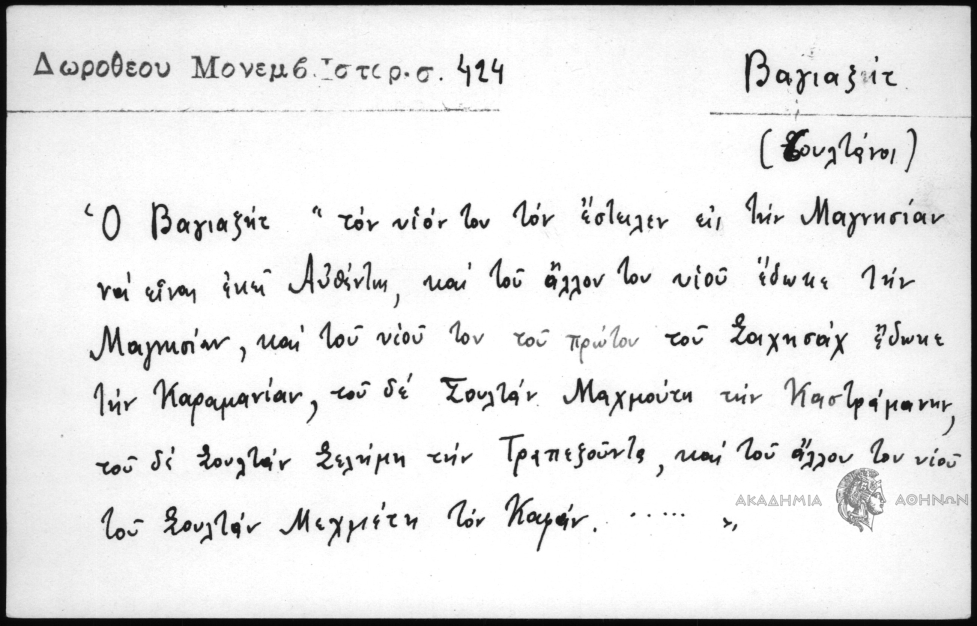 Δωροθεου Μονεμβ. Ἱστορ. σ. 424
Βαγιαζήτ
(Σουλτάνοι)
Ὁ Βαγιαζήτ " τόν υἱόν του τόν ἔστειλεν εἰς τήν Μαγνησίαν
νά εἶναι ἐκεῖ Αὐθέντης, καί τοῦ ἄλλου του υἱοῦ ἔδωκε τήν
Μαγνησίαν, καί τοῦ υἱοῦ του τοῦ πρώτου τοῦ Σαχησάχ ἔδωκε
τήν Καραμανίαν, τοῦ δέ Σουλτάν Μαχμούτη τήν Καστράμονην,
τοῦ δέ Σουλτάν Σελήμη τήν Τραπεζοῦντα, καί τοῦ ἄλλου του υἱοῦ
τοῦ Σουλτάν Μεχμέτη τόν Καφάν. ..... "
ΑΚΑΔΗΜΙΑ ΑΘΗΝΩΝ